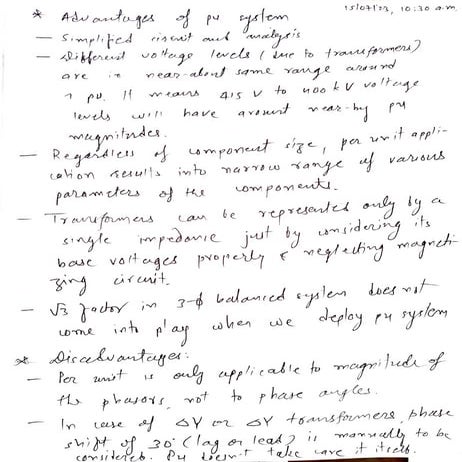 15/07/23, 10:30 a.m.
* Advantages of pu system
- Simplified circuit and analysis
- Different voltage levels (due to transformers)
are in near-about same range around
1 pu. It means 415 V to 400 kV voltage
levels will have around near-by pu
magnitudes.
- Regardless of component size, per unit appli-
cation results into narrow range of various
parameters of the components.
- Transformers can be represented only by a
single impedance just by considering its
base voltages properly & neglecting magneti-
zing circuit.
- √3 factor in 3-ϕ balanced system does not
come into play when we deploy pu system
* Disadvantages:
- Per unit is only applicable to magnitude of
the phasors, not to phase angles.
- In case of ΔY or ΔY transformers, phase
shift of 30° (lag or lead) is manually to be
considered. Pu doesn't take care it itself.